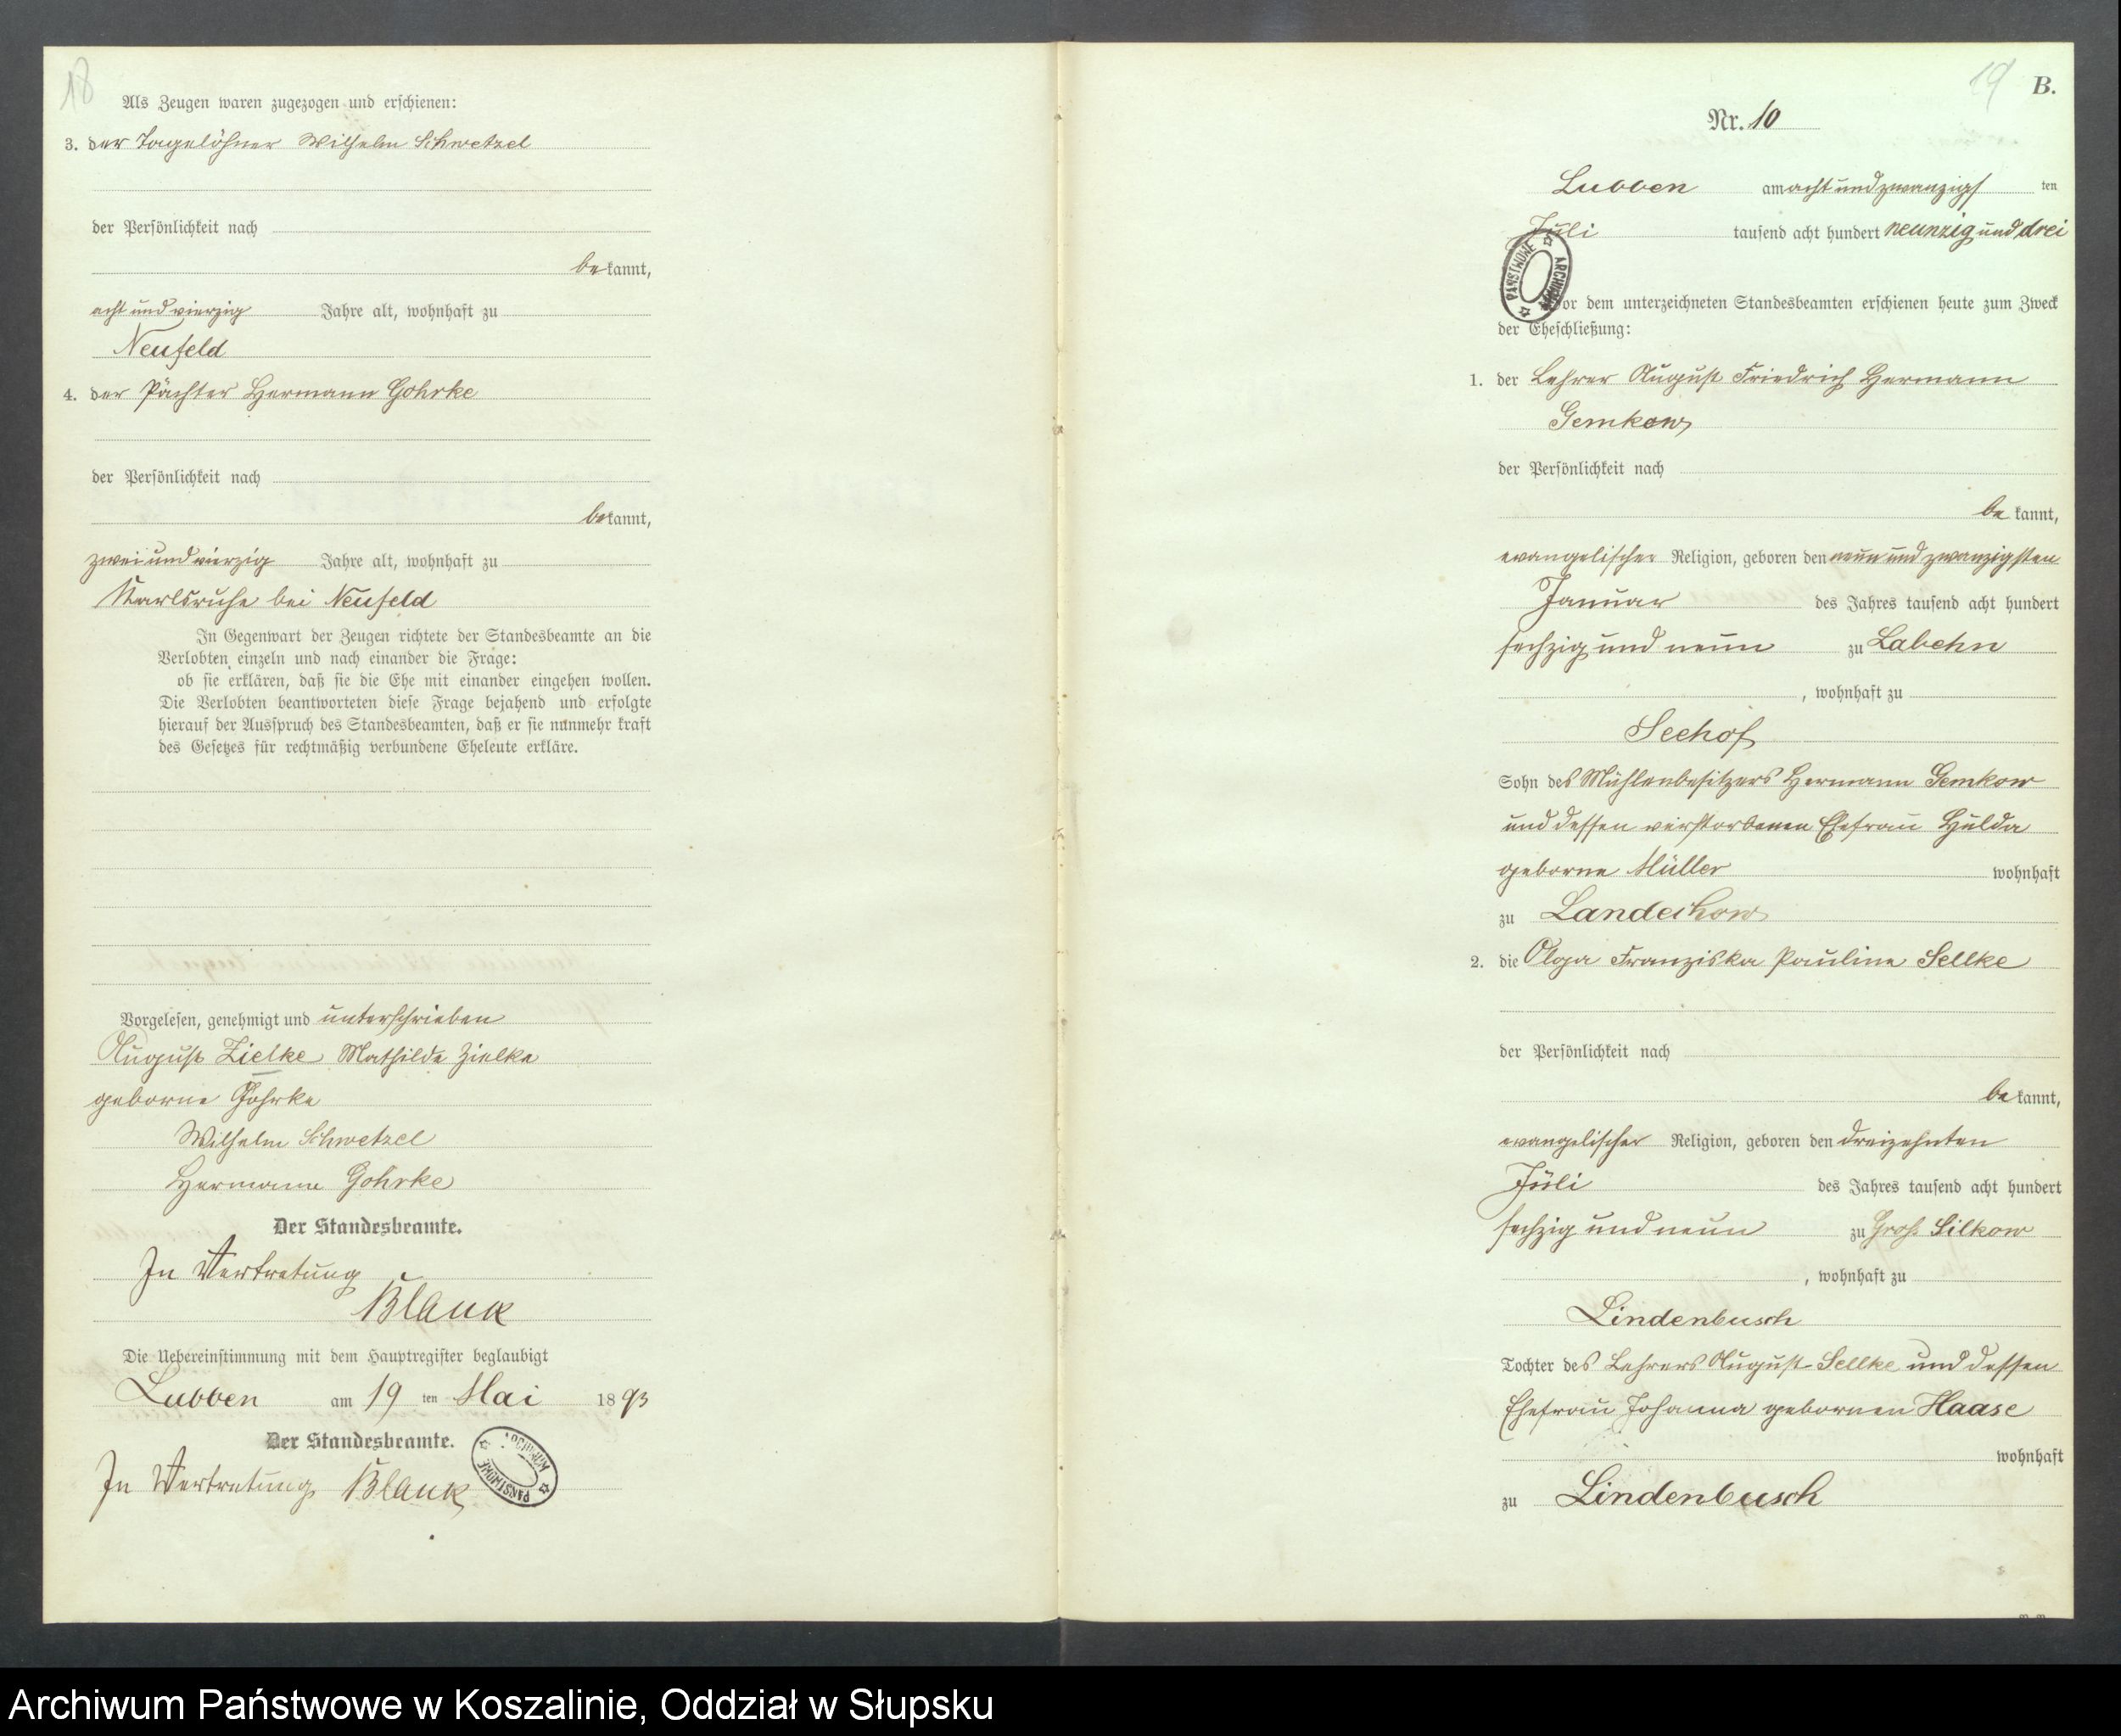 18
Als Zeugen waren zugezogen und erschienen:
3. der Tagelöhner Wilhelm Schwetzel
der Persönlichkeit nach
bekannt,
acht und vierzig Jahre alt, wohnhaft zu
Neufeld
4. der Pächter Hermann Gohrke
der Persönlichkeit nach
bekannt,
zwei und vierzig Jahre alt, wohnhaft zu
Karlsruhe bei Neufeld
In Gegenwart der Zeugen richtete der Standesbeamte an die
Verlobten einzeln und nach einander die Frage:
ob sie erklären, daß sie die Ehe mit einander eingehen wollen.
Die Verlobten beantworteten diese Frage bejahend und erfolgte
hierauf der Ausspruch des Standesbeamten, daß er sie nunmehr kraft
des Gesetzes für rechtmäßig verbundene Eheleute erkläre.
Vorgelesen, genehmigt und unterschrieben
August Zielke Mathilde Zielke
geborne Gohrke
Wilhelm Schwetzel
Hermann Gohrke
Der Standesbeamte.
In Vertretung
Blank
Die Uebereinstimmung mit dem Hauptregister beglaubigt
Lubben am 19 ten Mai 1893
Der Standesbeamte.
In Vertretung Blank
ARCHIWUM PAŃSTWOWE
19
B.
Nr. 10
Lubben am acht und zwanzigs ten
Juli tausend acht hundert neunzig und drei
ARCHIWUM PAŃSTWOWE
Vor dem unterzeichneten Standesbeamten erschienen heute zum Zweck
der Eheschließung:
1. der Lehrer August Friedrich Hermann
Gemkow
der Persönlichkeit nach
be kannt,
evangelischer Religion, geboren den neun und zwanzigsten
Januar des Jahres tausend acht hundert
sechzig und neun zu Labehn
, wohnhaft zu
Seehof
Sohn des Mühlenbesitzers Hermann Gemkow
und dessen verstorbenen Ehefrau Hulda
geborne Müller wohnhaft
zu Landechow
2. die Olga Franziska Pauline Sellke
der Persönlichkeit nach
be kannt,
evangelischer Religion, geboren den dreizehnten
Juli des Jahres tausend acht hundert
sechzig und neun zu Groß Silkow
, wohnhaft zu
Lindenbusch
Tochter des Lehrers August Sellke und dessen
Ehefrau Johanna gebornen Haase
wohnhaft
zu Lindenbusch
Archiwum Państwowe w Koszalinie, Oddział w Słupsku